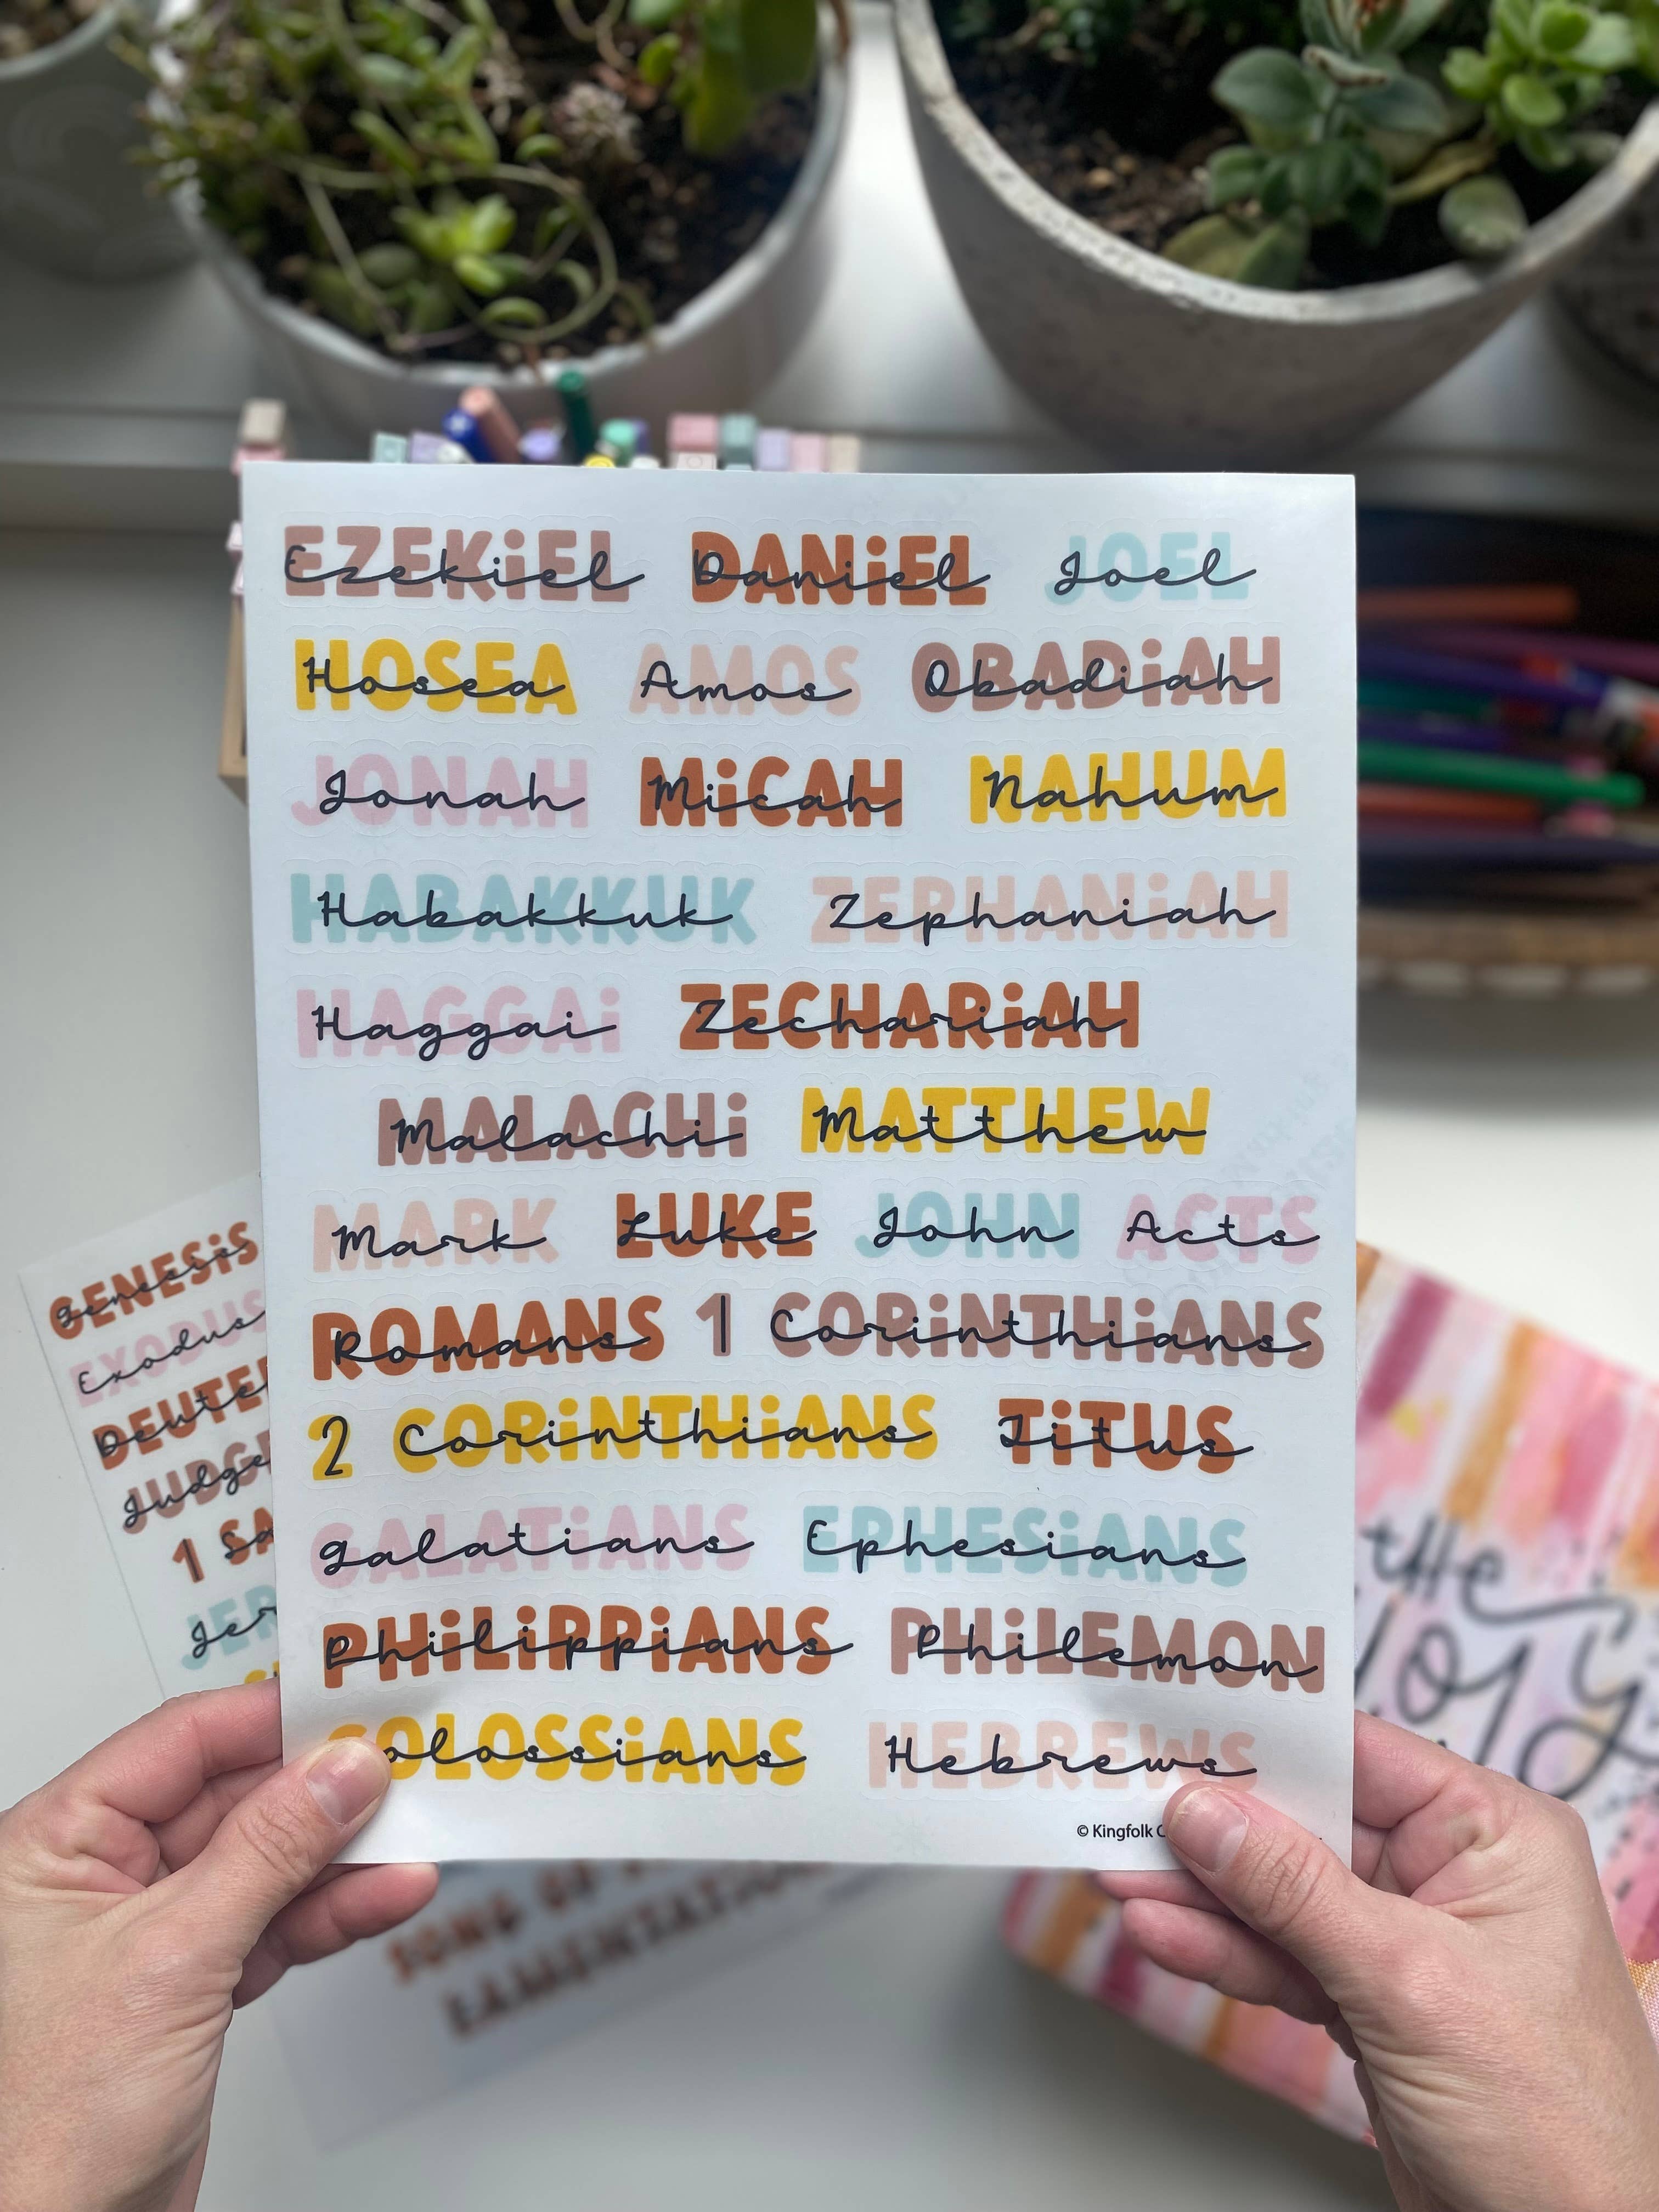 EZEKIEL Ezekiel DANIEL Daniel JOEL Joel
HOSEA Hosea AMOS Amos OBADIAH Obadiah
JONAH Jonah MICAH Micah NAHUM Nahum
HABAKKUK Habakkuk ZEPHANIAH Zephaniah
HAGGAI Haggai ZECHARIAH Zechariah
MALACHI Malachi MATTHEW Matthew
MARK Mark LUKE Luke JOHN John ACTS Acts
ROMANS Romans 1 CORINTHIANS Corinthians
2 CORINTHIANS Corinthians TITUS Titus
GALATIANS galatians EPHESIANS Ephesians
PHILIPPIANS Philippians PHILEMON Philemon
COLOSSIANS olossians HEBREWS Hebrews
© Kingfolk
GENESIS genesis
EXODUS Exodus
DEUTE Deute
JUDGE Judge
1 Sa
JER Jer
SONG OF
LAMENTATIONS
the